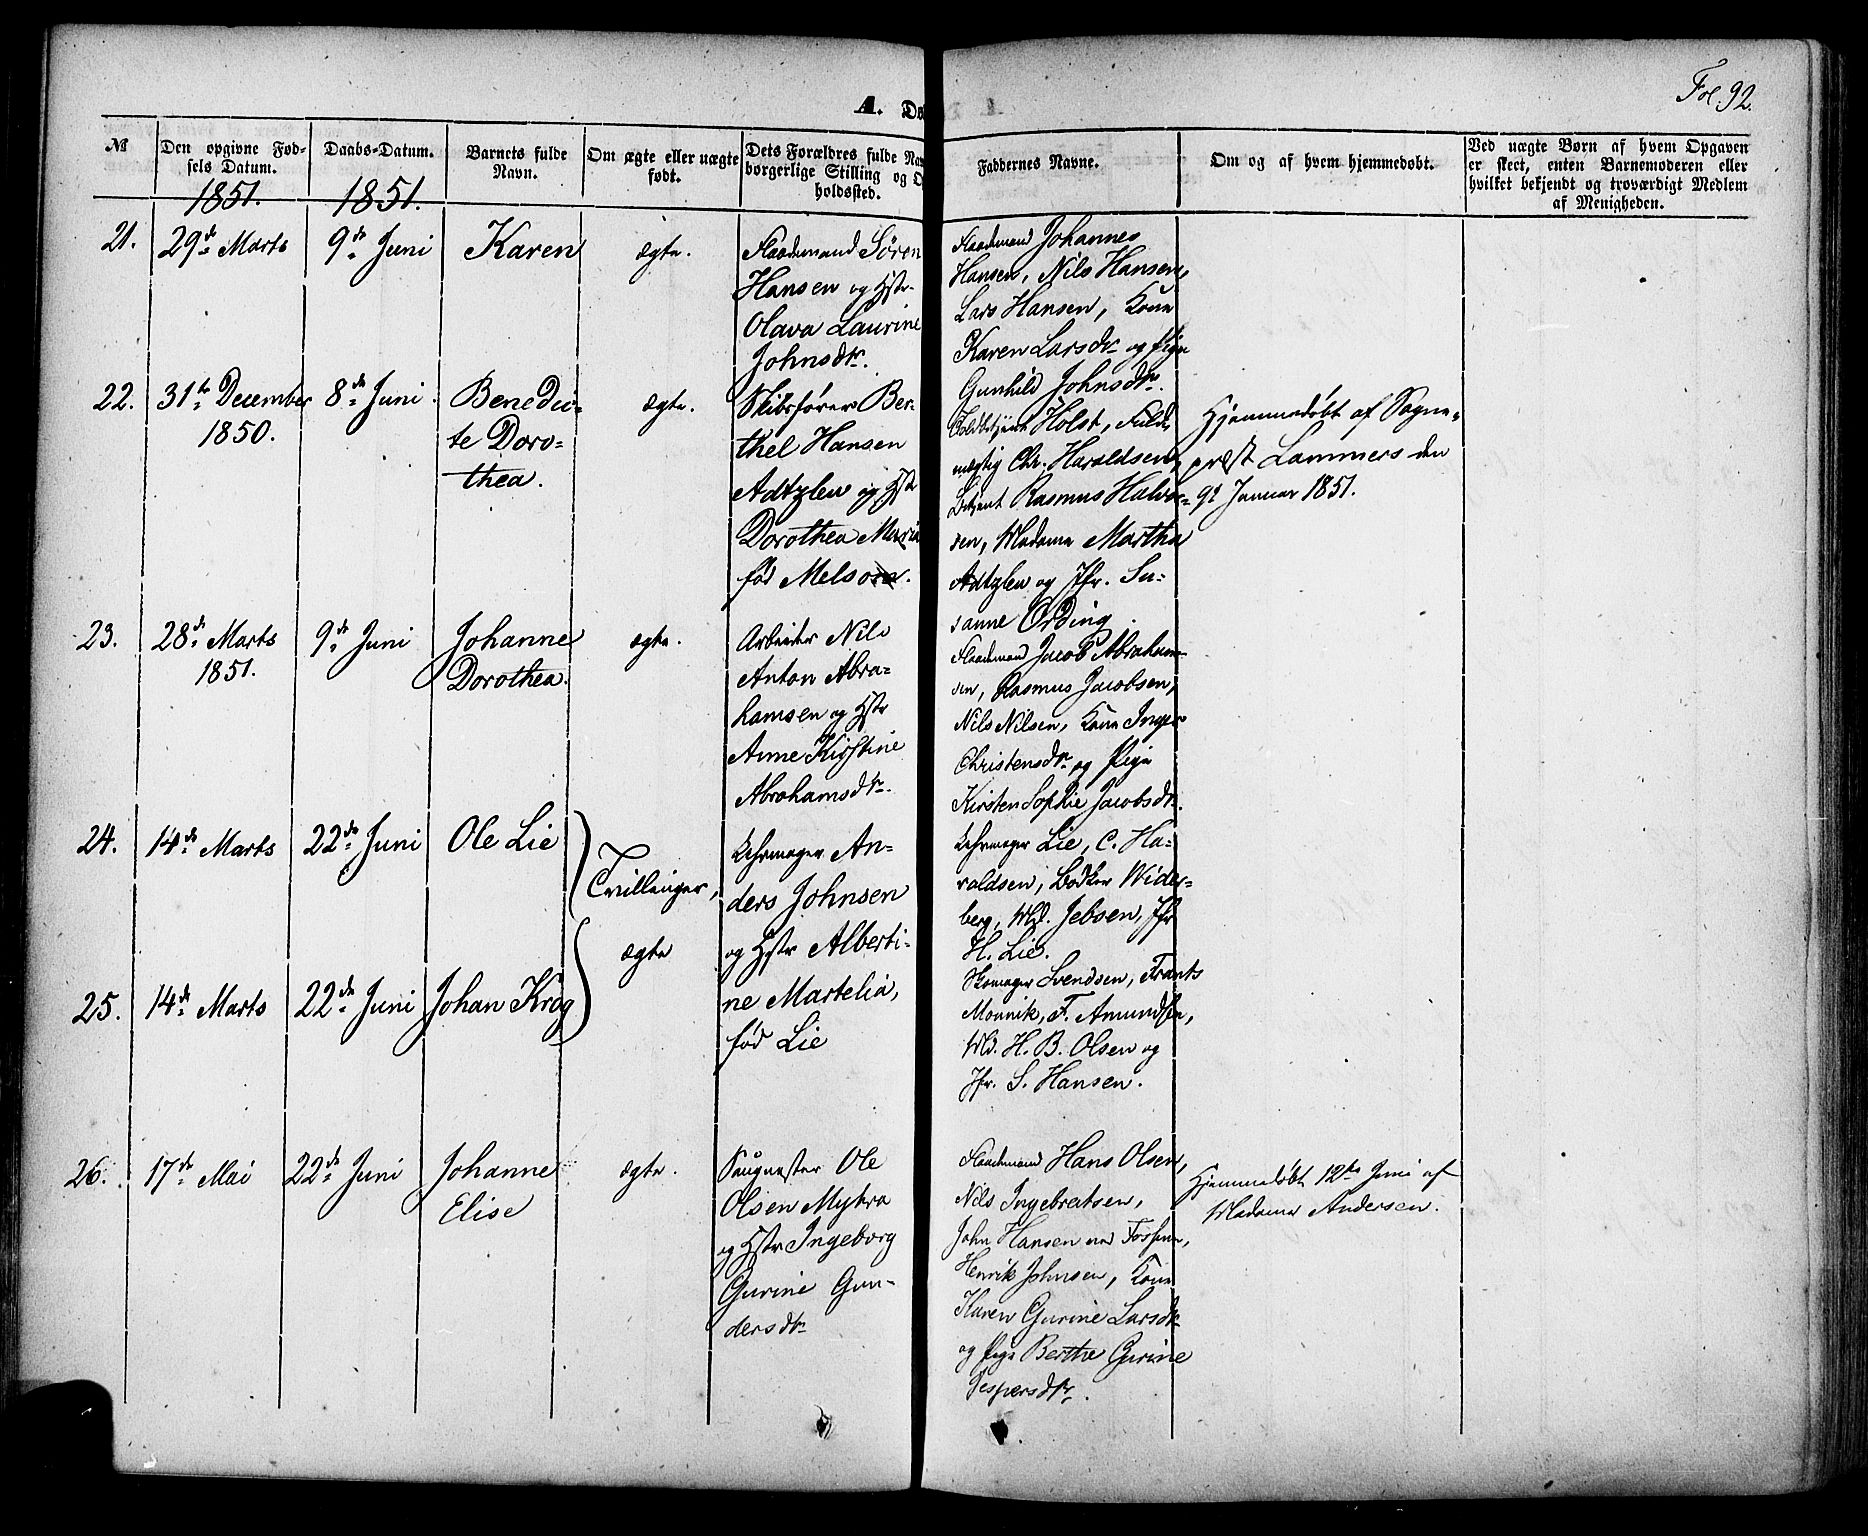 Fol. 92.
A. Dø
№
Den opgivne Fød-
sels Datum.
1851.
Daabs-Datum.
1851.
Barnets fulde
Navn.
Om ægte eller uægte
født.
Dets Forældres fulde Nav
borgerlige Stilling og O
holdssted.
Faddernes Navne.
Om og af hvem hjemmedøbt.
Ved uægte Børn af hvem Opgaven
er skeet, enten Barnemoderen eller
hvilket bekjendt og troværdigt Medlem
af Menigheden.
21.
29de Marts
9de Juni
Karen
ægte.
Flaademand Søren
Hansen og Hstr
Olava Laurine
Johnsdtr.
Flaademand Johannes
Hansen, Nils Hansen,
Lars Hansen, Kone
Karen Larsdtr og Pige
Gunhild Johnsdtr.
22.
31te December
1850.
8de Juni.
Benedic-
te Doro-
thea.
ægte.
Skibsfører Ber-
thel Hansen
Adtzlew og Hstr
Dorothea Maria
fød Melsom.
Toldbetjent Holst, Fuld-
mægtig Chr. Haraldsen,
Betjent Rasmus Halvor-
sen, Madame Martha
Adtzlew og Jfr. Su-
sanne Ording.
Hjemmedøbt af Sogne-
prest Lammers den
9de Januar 1851.
23.
28de Marts
1851.
9de Juni
Johanne
Dorothea.
ægte.
Arbeider Nils
Anton Abra-
hamsen og Hstr
Anne Kirstine
Abrahamsdtr.
Flaademand Jacob Abraham-
sen, Rasmus Jacobsen,
Nils Nilsen, Kone Inger
Christensdtr og Pige
Kirsten Sophie Jacobsdtr.
24.
14de Marts
22de Juni
Ole Lie
Tvillinger,
ægte
Uhrmager An-
ders Johnsen
og Hstr Alberti-
ne Martelia,
fød Lie
Uhrmager Lie, C. Ha-
raldsen, Bødker Wider-
berg, Md. Jebsen, Jfr
H. Lie.
25.
14de Marts
22de Juni
Johan Krog
Skomager Svendsen, Frants
Monnik, F. Amundsen,
Md. H. B. Olsen og
Jfr. S. Hansen.
26.
17de Mai
22de Juni
Johanne
Elise
ægte.
Saugmester Ole
Olsen Mykra
og Hstr Ingeborg
Gurine Gun-
dersdtr
Flaademand Hans Olsen,
Nils Ingebretsen,
John Hansen ved Fossum,
Henrik Johnsen, Kone
Karen Gurine Larsdtr
og Pige Berthe Gurine
Jespersdtr.
Hjemmedøbt 12te Juni af
Madame Andersen.